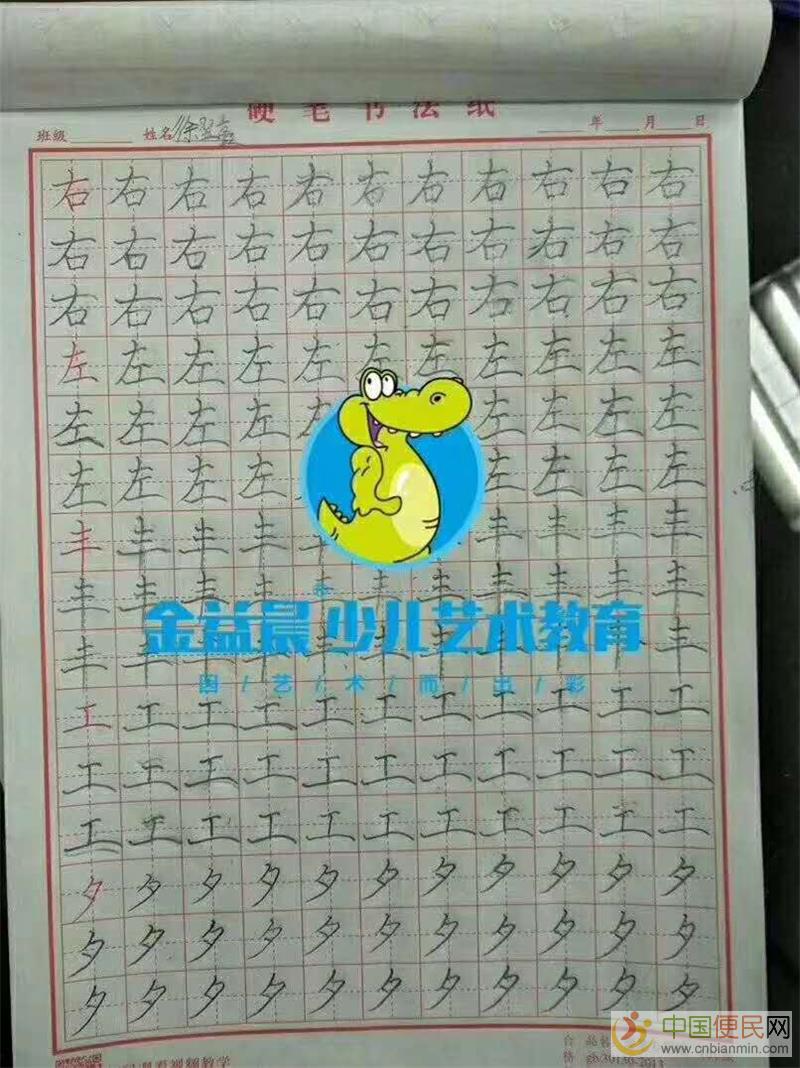 硬笔书法纸
班级 姓名 徐 年 月 日
右右右右右右右右右右右
右右右右右右右右右右右
右右右右右右右右右右右
左左左左左左左左左左左
左左左左左左左左左
左左左左左左左左
丰丰丰丰丰丰丰丰丰丰
丰丰丰丰丰丰丰丰丰丰丰
金益晨少儿艺术教育
丰丰丰丰丰丰丰丰丰丰丰
因/艺/术/而/出/彩
工工工工工工工工工工工
工工工工工工工工工工工
工工工工工工工工工工工
夕夕夕夕夕夕夕夕夕夕夕
夕夕夕夕夕夕夕夕夕夕夕
夕夕夕夕夕夕夕夕夕夕夕
中国便民网
www.cnbianmin.com
看视频教学